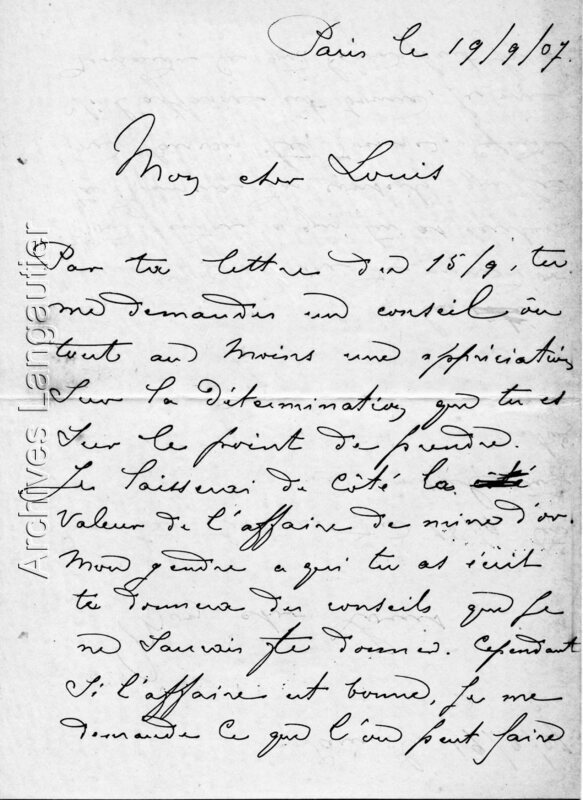 Paris le 19/9/07.
Mon cher Louis
Par ta lettre du 15/9, tu
me demandes un conseil ou
tout au moins une appréciation
Sur la détermination que tu es
Sur le point de prendre.
Je laisserai de côté la
Valeur de l'affaire de mine d'or.
Mon gendre a qui tu as écrit
te donnera des conseils que je
ne saurais te donner. Cependant
Si l'affaire est bonne, je me
demande Ce que l'on peut faire
Archives Langautier